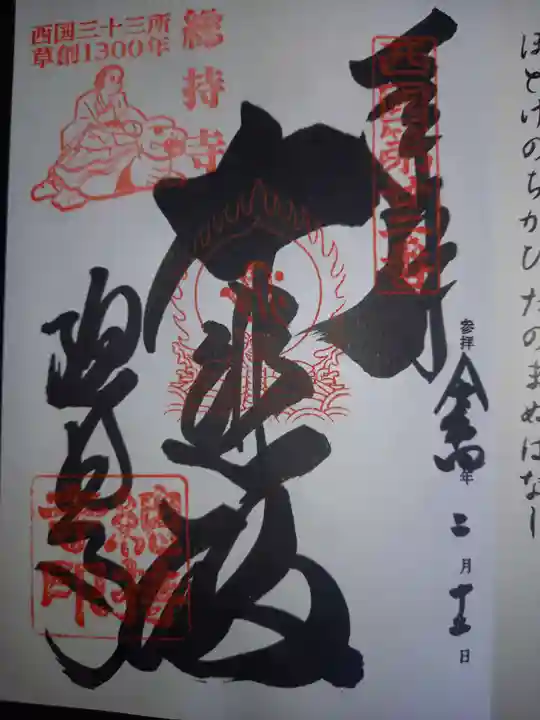 ほとけのちかひたのまぬはなし
奉拝
参拝 令和四年 二月 十五日
西国第廿二番
大悲殿
総持寺
總持寺
西国三十三所
草創1300年
總持寺印